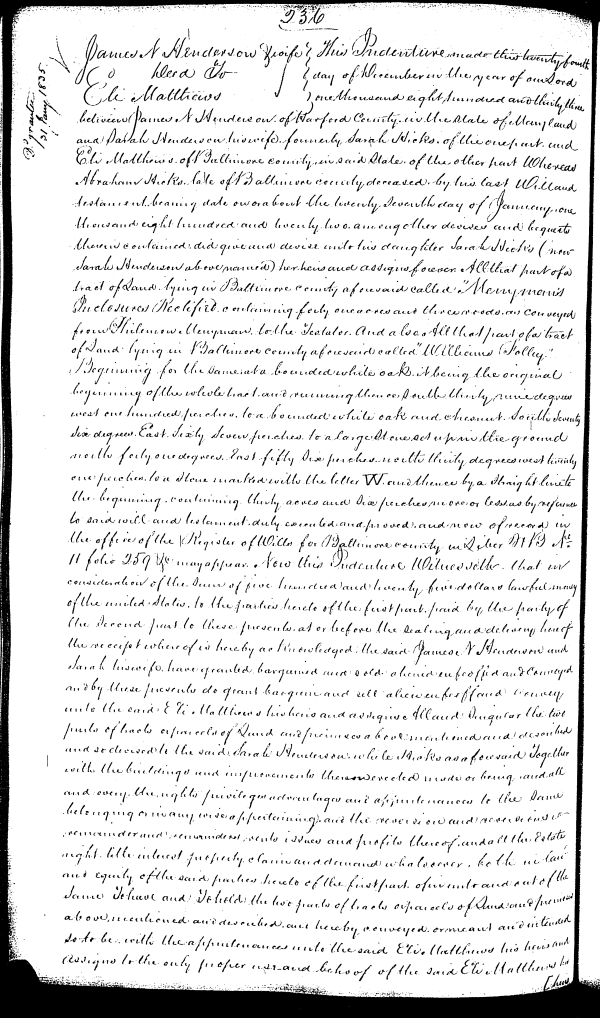 236
James N Henderson & wife } This Indenture made this twenty fourth
Deed To } day of December in the year of our Lord
Eli Matthews } one thousand eight hundred and thirty three
between James N Henderson of Harford County in the State of Maryland
and Sarah Henderson his wife formerly Sarah Hicks of the one part and
Eli Matthews of Baltimore county in said State of the other part Whereas
Abraham Hicks late of Baltimore county deceased by his last Will and
testament bearing date on or about the twenty Seventh day of January one
thousand eight hundred and twenty two among other devises and bequests
therein contained did give and devise unto his daughter Sarah Hicks (now
Sarah Henderson above named) her heirs and assigns forever All that part of a
tract of Land lying in Baltimore county aforesaid called "Merryman's
Inclosures Rectified containing forty one acres and three roods as conveyed
from Philemon Merryman to the Testator And also All that part of a tract
of Land lying in Baltimore county aforesaid called "Williams Folley"
Beginning for the same at a bounded white oak it being the original
beginning of the whole tract and running thence South thirty nine degrees
west one hundred perches to a bounded white oak and chesnut South Seventy
Six degrees East Sixty Seven perches to a Large Stone set up in the ground
north forty one degrees East fifty Six perches north thirty degrees west twenty
one perches to a Stone marked with the letter W and thence by a Straight line to
the beginning containing thirty acres and Six perches more or less as by reference
to said will and testament duly executed and proved and now of record in
the office of the Register of Wills for Baltimore county in Liber No
11 folio 259 &c may appear Now this Indenture Witnesseth that in
consideration of the Sum of five hundred and twenty five dollars lawful money
of the united States to the parties hereto of the first part paid by the party of
the Second part to these presents at or before the Sealing and delivery hereof
the receipt whereof is hereby acknowledged the said James N Henderson and
Sarah his wife have granted bargained and sold aliened enfeoffed and Conveyed
and by these presents do grant bargain and sell alien enfeoff and Convey
unto the said Eli Matthews his heirs and assigns All and Singular the two
parts of tracts or parcels of Land and premises above mentioned and described
and so devised to the said Sarah Henderson while Hicks as aforesaid Together
with the buildings and improvements thereon erected made or being and all
and every the rights privileges advantages and appurtenances to the Same
belonging or in any wise appertaining and the reversion and reversions
remainder and remainders rents issues and profits thereof and all the Estate
right title interest property claim and demand whatsoever both in law
and equity of the said parties hereto of the first part of in unto and out of the
Same To have and To hold the two parts of tracts or parcels of Land and premises
above mentioned and described and hereby conveyed or meant and intended
so to be with the appurtenances unto the said Eli Matthews his heirs and
assigns to the only proper use and behoof of the said Eli Matthews his